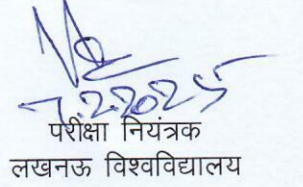 7.2.2025
परीक्षा नियंत्रक
लखनऊ विश्वविद्यालय